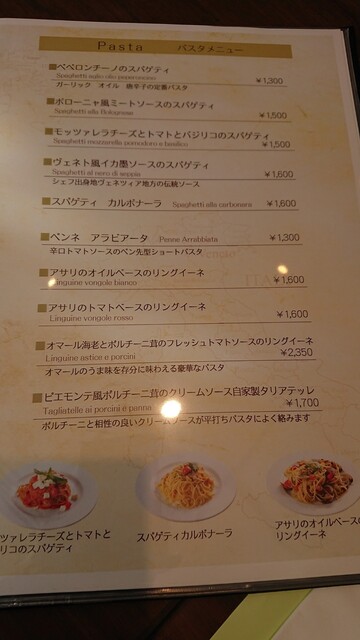 Pasta パスタメニュー
■ペペロンチーノのスパゲティ
Spaghetti aglio olio peperoncino ¥1,300
ガーリック オイル 唐辛子の定番パスタ
■ボローニャ風ミートソースのスパゲティ
Spaghetti alla Bolognese ¥1,500
■モッツァレラチーズとトマトとバジリコのスパゲティ
Spaghetti mozzarella pomodoro e basilico ¥1,500
■ヴェネト風イカ墨ソースのスパゲティ
Spaghetti al nero di seppia ¥1,600
シェフ出身地ヴェネツィア地方の伝統ソース
■スパゲティ カルボナーラ Spaghetti alla carbonara ¥1,600
■ペンネ アラビアータ Penne Arrabbiata ¥1,300
辛口トマトソースのペン先型ショートパスタ
■アサリのオイルベースのリングイーネ
Linguine vongole bianco ¥1,600
■アサリのトマトベースのリングイーネ
Linguine vongole rosso ¥1,600
■オマール海老とポルチーニ茸のフレッシュトマトソースのリングイーネ
Linguine astice e porcini ¥2,350
オマールのうま味を存分に味わえる豪華なパスタ
■ピエモンテ風ポルチーニ茸のクリームソース自家製タリアテッレ
Tagliatelle ai porcini e panna ¥1,700
ポルチーニと相性の良いクリームソースが平打ちパスタによく絡みます
ツァレラチーズとトマトと
リコのスパゲティ
スパゲティカルボナーラ
アサリのオイルベースの
リングイーネ